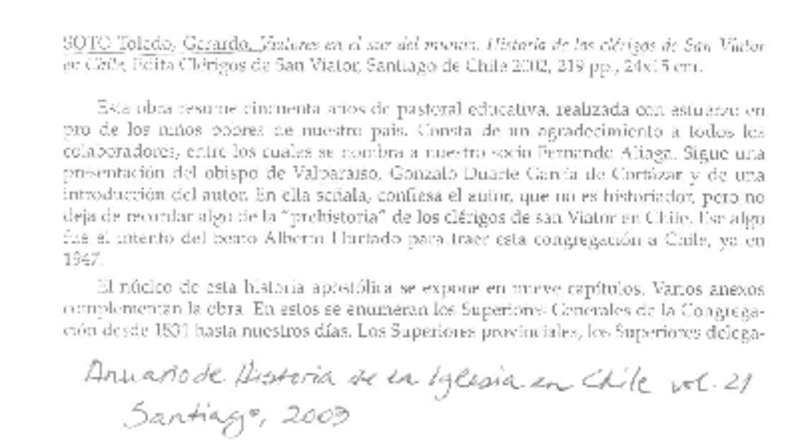 SOTO Toledo, Gerardo, Viatores en el sur del mundo. Historia de los clérigos de San Viator
en Chile, Edita Clérigos de San Viator, Santiago de Chile 2002, 219 pp., 24x15 cm.
Esta obra resume cincuenta años de pastoral educativa, realizada con esfuerzo en
pro de los niños pobres de nuestro país. Consta de un agradecimiento a todos los
colaboradores, entre los cuales se nombra a nuestro socio Fernando Aliaga. Sigue una
presentación del obispo de Valparaíso, Gonzalo Duarte García de Cortázar y de una
introducción del autor. En ella señala, confiesa el autor, que no es historiador, pero no
deja de recordar algo de la "prehistoria" de los clérigos de san Viator en Chile. Ese algo
fue el intento del beato Alberto Hurtado para traer esta congregación a Chile, ya en
1947.
El núcleo de esta historia apostólica se expone en nueve capítulos. Varios anexos
complementan la obra. En estos se enumeran los Superiores Generales de la Congrega-
ción desde 1831 hasta nuestros días. Los Superiores provinciales, los Superiores delega-
Anuario de Historia de la Iglesia en Chile vol. 21
Santiago, 2003